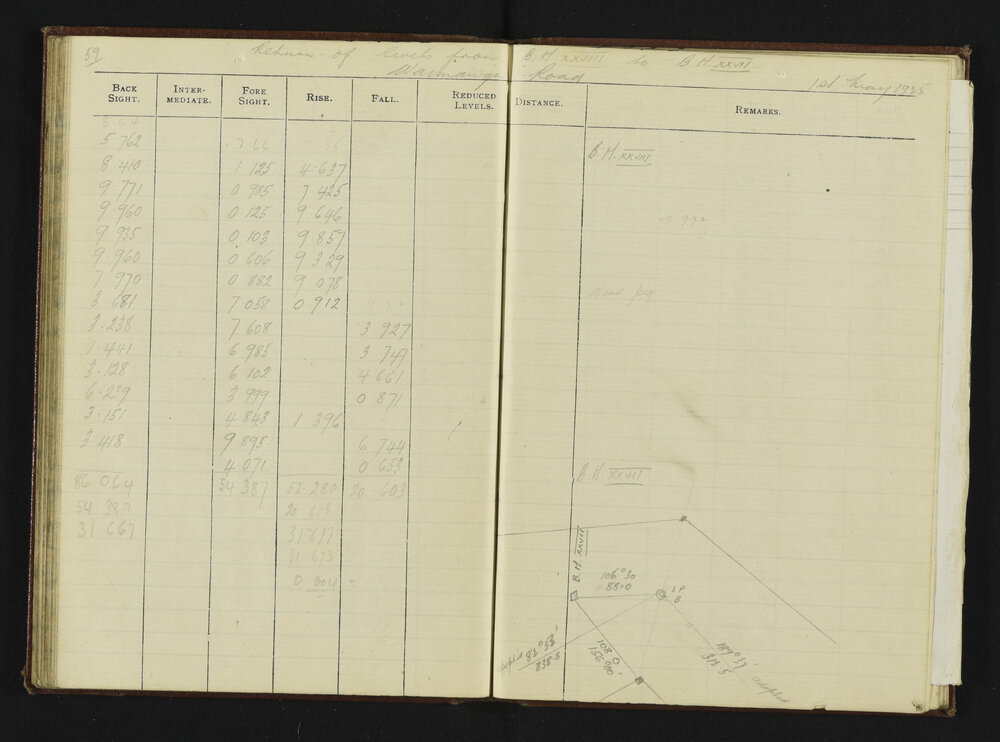 59
Return of levels from B.M. XXVIII to B.M. XXVII
Waimangu Road
1st May 1935
BACK SIGHT. INTER-MEDIATE. FORE SIGHT. RISE. FALL. REDUCED LEVELS. DISTANCE. REMARKS.
5.762 B.M. XXVIII
8.410 1.125 4.637
9.771 0.985 7.425
9.960 0.125 9.646
9.935 0.103 9.857
9.960 0.606 9.329
7.970 0.882 9.078
3.681 7.058 0.912 Wood peg
3.238 7.608 3.927
1.441 6.985 3.747
3.128 6.102 4.661
6.239 3.999 0.871
3.151 4.843 1.396
3.418 9.895 6.744
4.071 0.653 B.M. XXVII
86.064 54.387 52.280 20.603
54.387
31.667 31.677
31.673
0.004
B.M. XXVII
106°30
88.0
I.P
B
82°53'
838.8
108 0
156.00
189°37'
311.5
adopted